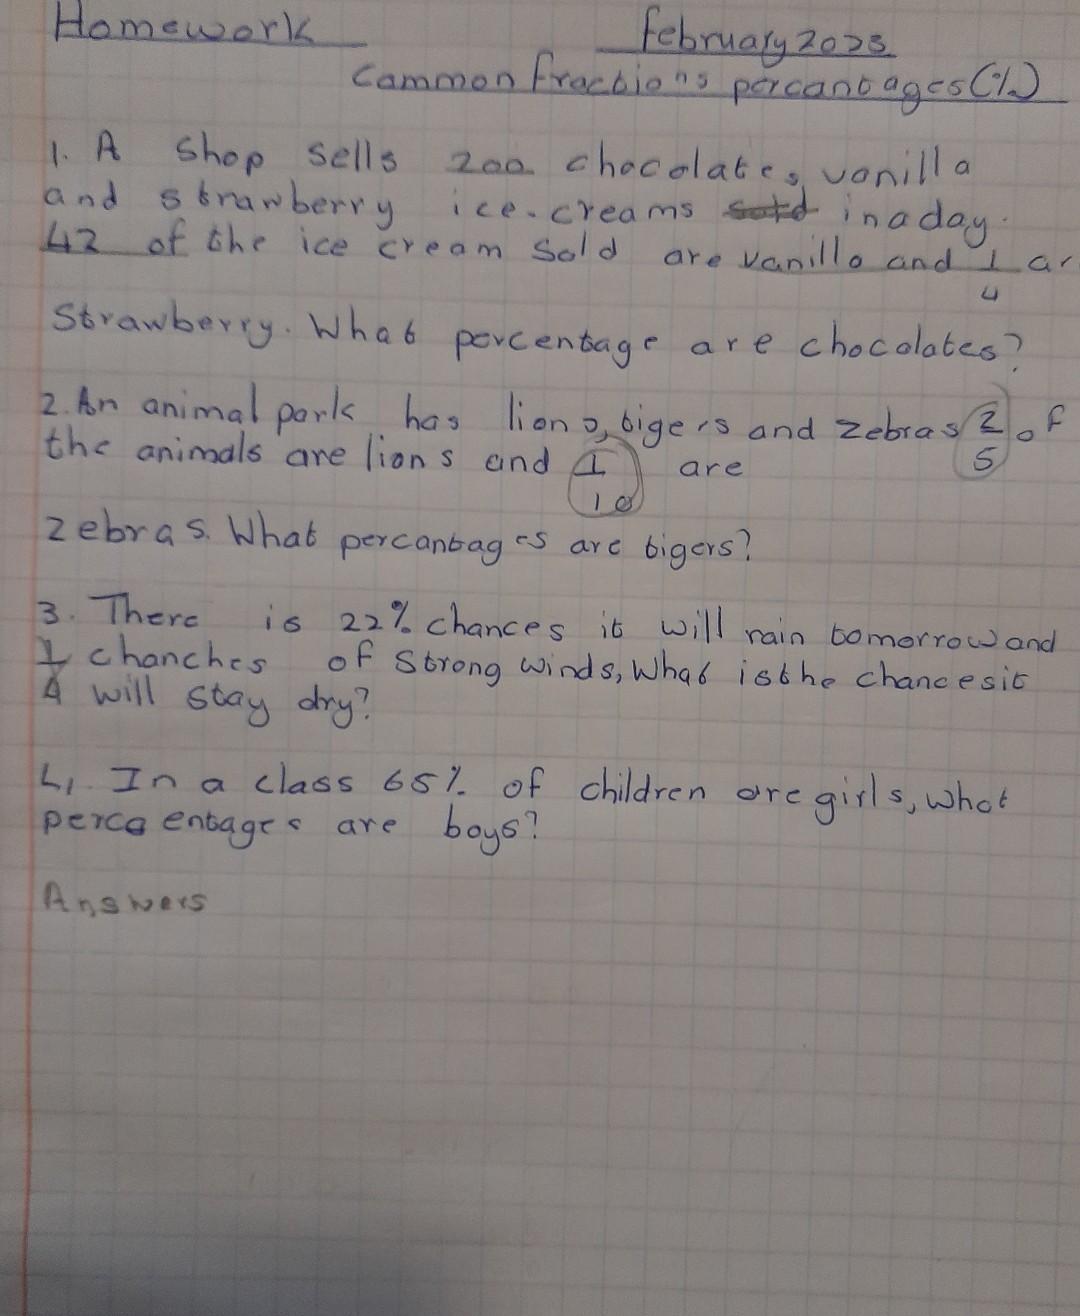 Homework
February 2023
Common Fractions percantages (%)
1. A shop sells 200 chocolates, vanilla
and strawberry ice-creams in a day.
42 of the ice cream sold are vanilla and 1/4 ar
Strawberry. What percentage are chocolates?
2. An animal park has lions, tigers and zebras 2/5 of
the animals are lions and 1/10 are
zebras. What percantages are tigers?
3. There is 22% chances it will rain tomorrow and
1/4 chanches of strong winds, What is the chances it
will stay dry?
4. In a class 65% of children are girls, what
percaentages are boys?
Answers